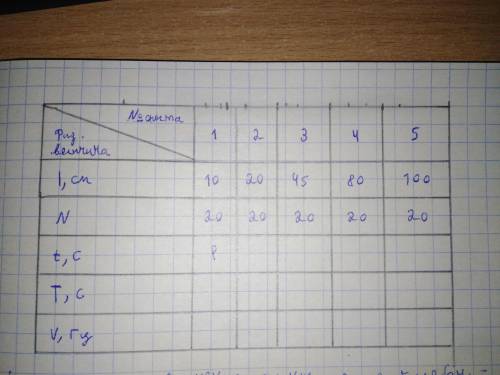 № опыта
Физ. величина
1 2 3 4 5
l, см 10 20 45 80 100
N 20 20 20 20 20
t, c
T, c
ν, Гц